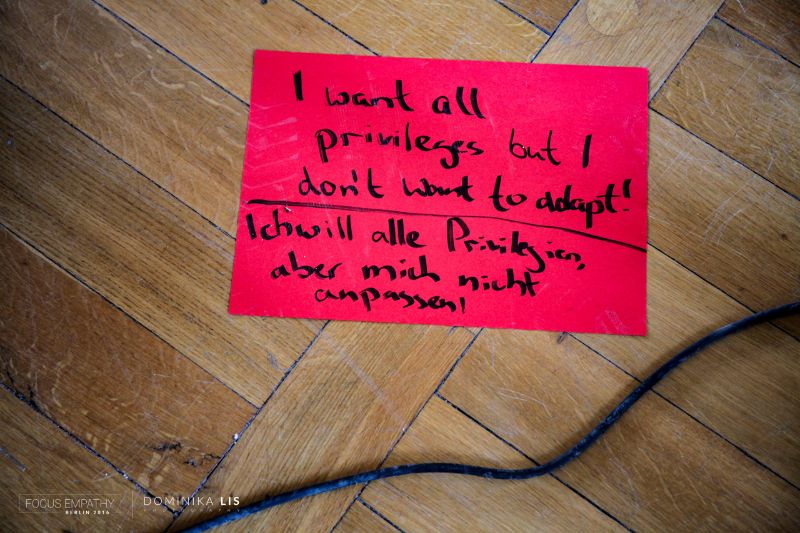 I want all
privileges but I
don't want to adapt!
Ich will alle Privilegien,
aber mich nicht
anpassen!
FOCUS EMPATHY
BERLIN 2016
DOMINIKA LIS